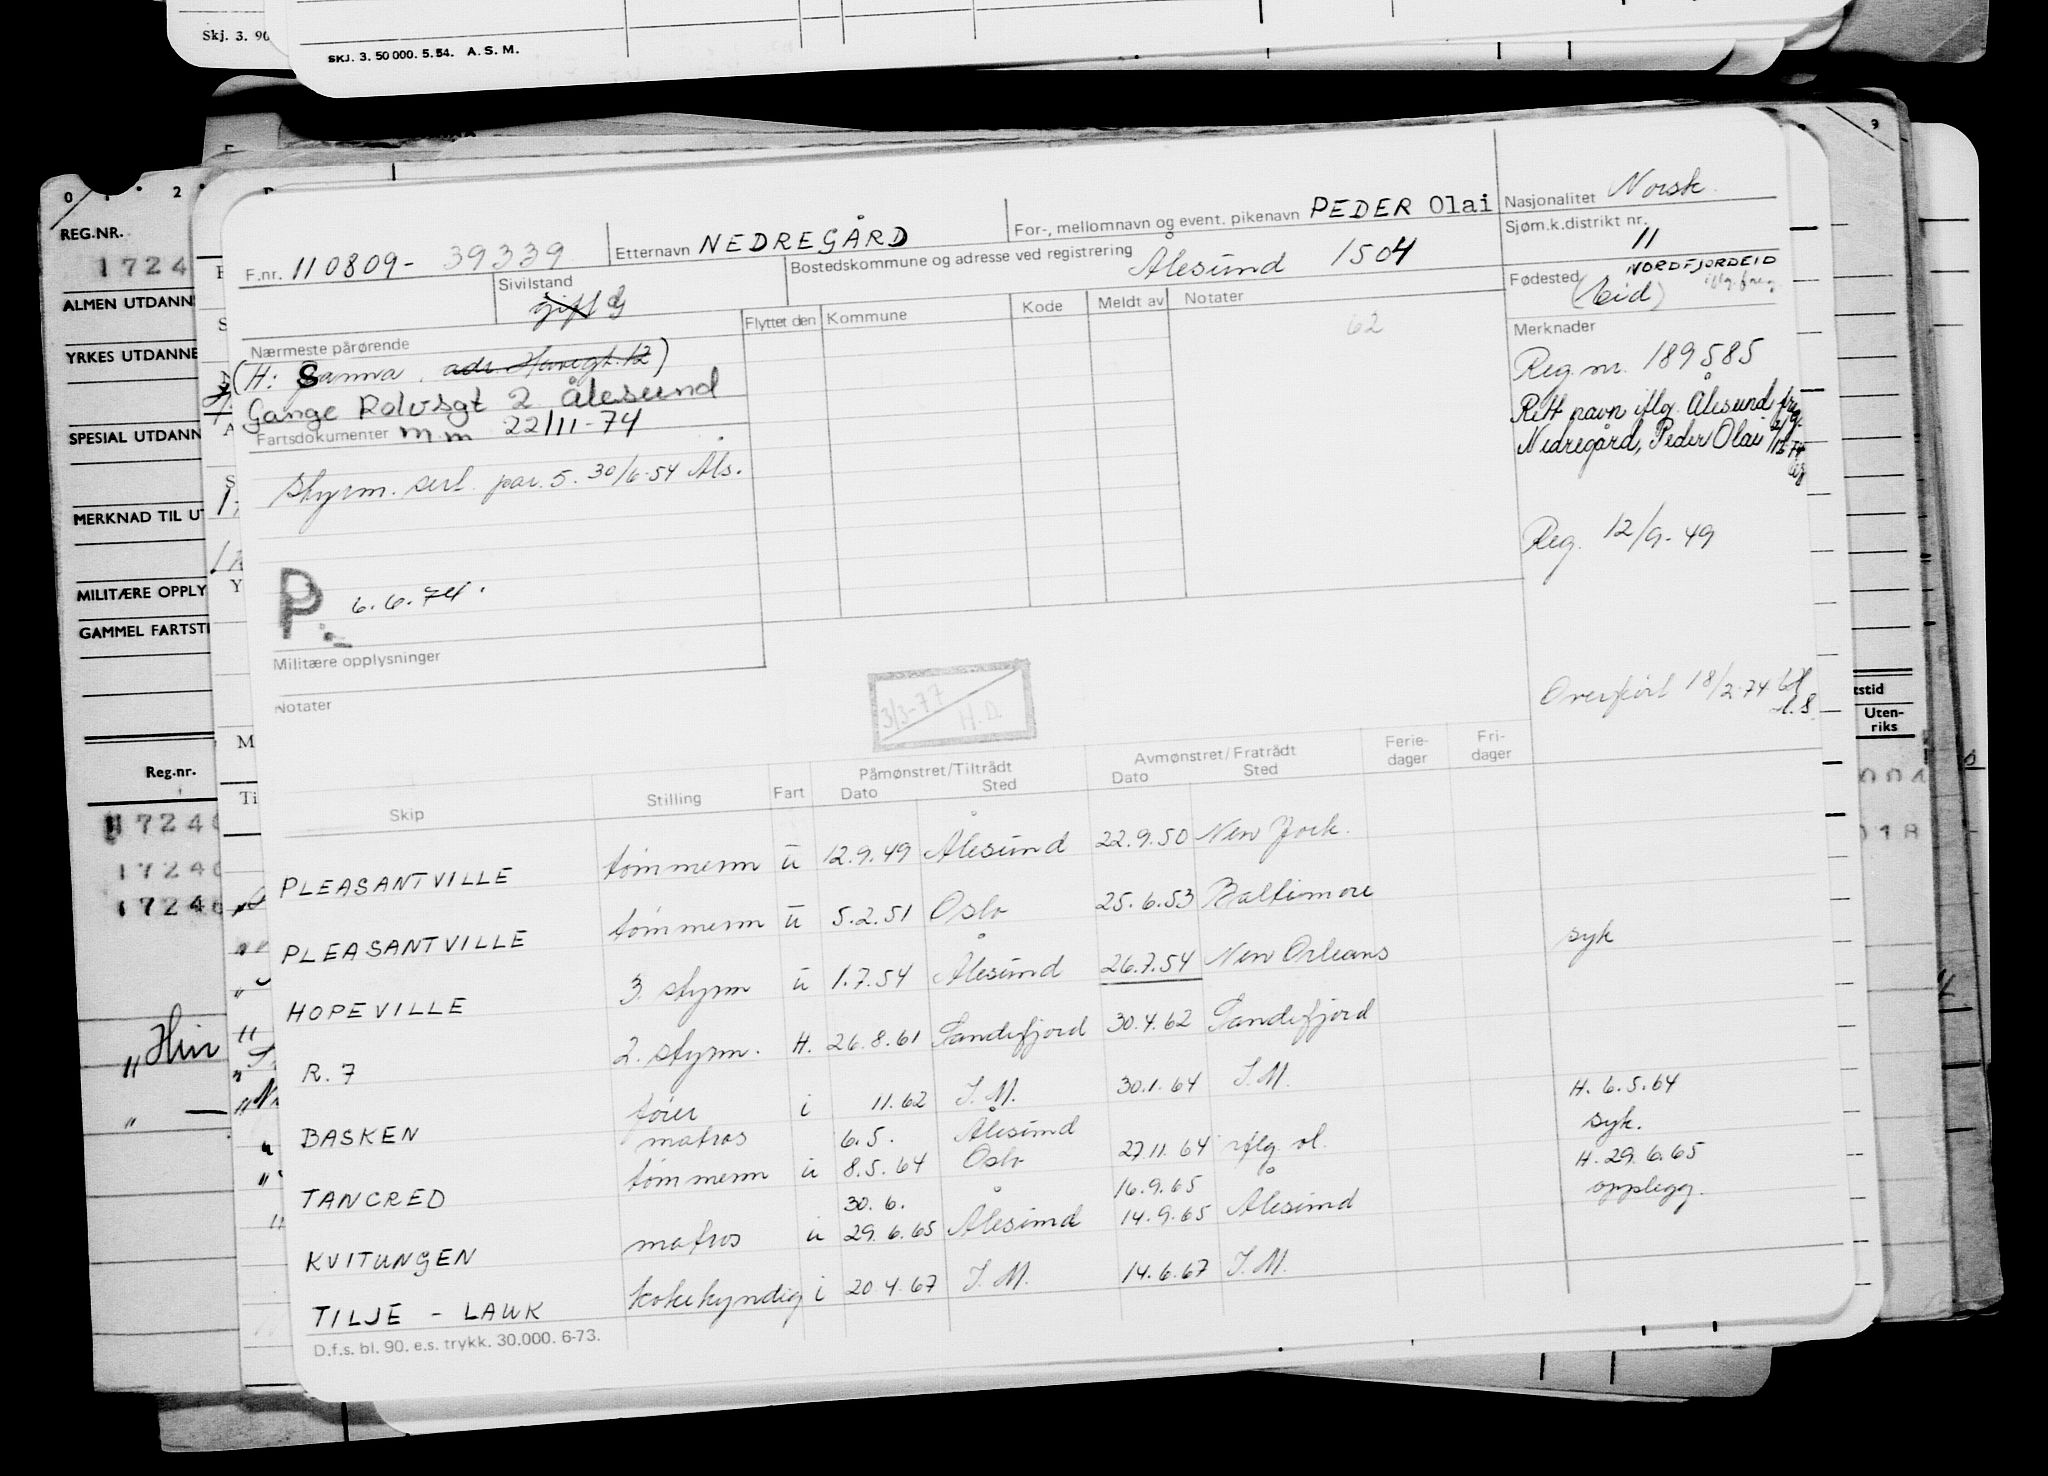 Skj. 3. 90
SKJ. 3. 50 000. 5. 54. A. S. M.
9
0 1 2
REG.NR.
1724
ALMEN UTDANN
YRKES UTDANNE
SPESIAL UTDANN
MERKNAD TIL UT
MILITÆRE OPPLY
GAMMEL FARTSTI
Reg.nr.
17240
17240
17240
"Hin
" —
F.nr. 110809- 39339
Etternavn NEDREGÅRD
For-, mellomnavn og event. pikenavn PEDER Olai
Nasjonalitet Norsk
Sjøm.k.distrikt nr. 11
Sivilstand gift G
Bostedskommune og adresse ved registrering Ålesund 1504
Fødested (Eid) NORDFJORDEID iflg. freg.
Nærmeste pårørende
(H: Sanna, adr. Havegt. 12)
Gange Rolvsgt 2 Ålesund
Fartsdokumenter m.m 22/11-74
Flyttet den Kommune Kode Meldt av Notater
62
Merknader
Reg nr. 189585
Rett navn iflg. Ålesund freg.
Nedregård, Peder Olai
styrm. sert. par. 5. 30/6-54 Åls.
Reg. 12/9-49
P. 6.6.74.
Militære opplysninger
Overført 18/2-74
Notater
3/3-77 H.D.
Skip Stilling Fart Påmønstret/Tiltrådt Dato Sted Avmønstret/Fratrådt Dato Sted Ferie-dager Fri-dager
PLEASANTVILLE tømmerm u 12.9.49 Ålesund 22.9.50 New York.
PLEASANTVILLE tømmerm u 5.2.51 Oslo 25.6.53 Baltimore
HOPEVILLE 3. styrm u 1.7.54 Ålesund 26.7.54 New Orleans syk
R. 7 2. styrm. H. 26.8.61 Sandefjord 30.4.62 Sandefjord
BASKEN fører i 11.62 I.M. 30.1.64 I.M.
matros 6.5. Ålesund H. 6.5.64
TANCRED tømmerm u 8.5.64 Oslo 27.11.64 iflg ol. syk.
30.6. 16.9.65 H. 29.6.65
KVITUNGEN matros u 29.6.65 Ålesund 14.9.65 Ålesund opplegg.
TILJE - LAUK kokekyndig i 20.4.67 I.M. 14.6.67 I.M.
D.f.s. bl. 90. e.s. trykk. 30.000. 6-73.
tstid
Uten-
riks
001
018